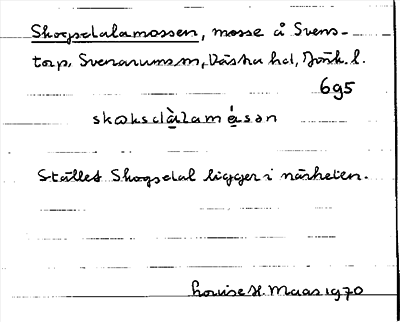 Skogsdalamossen, mosse å Svens-
torp, Svenarums sn, Västra hd, Jönk. l.
695
skoksdàlamósən
Stället Skogsdal ligger i närheten.
Louise H. Maas 1970